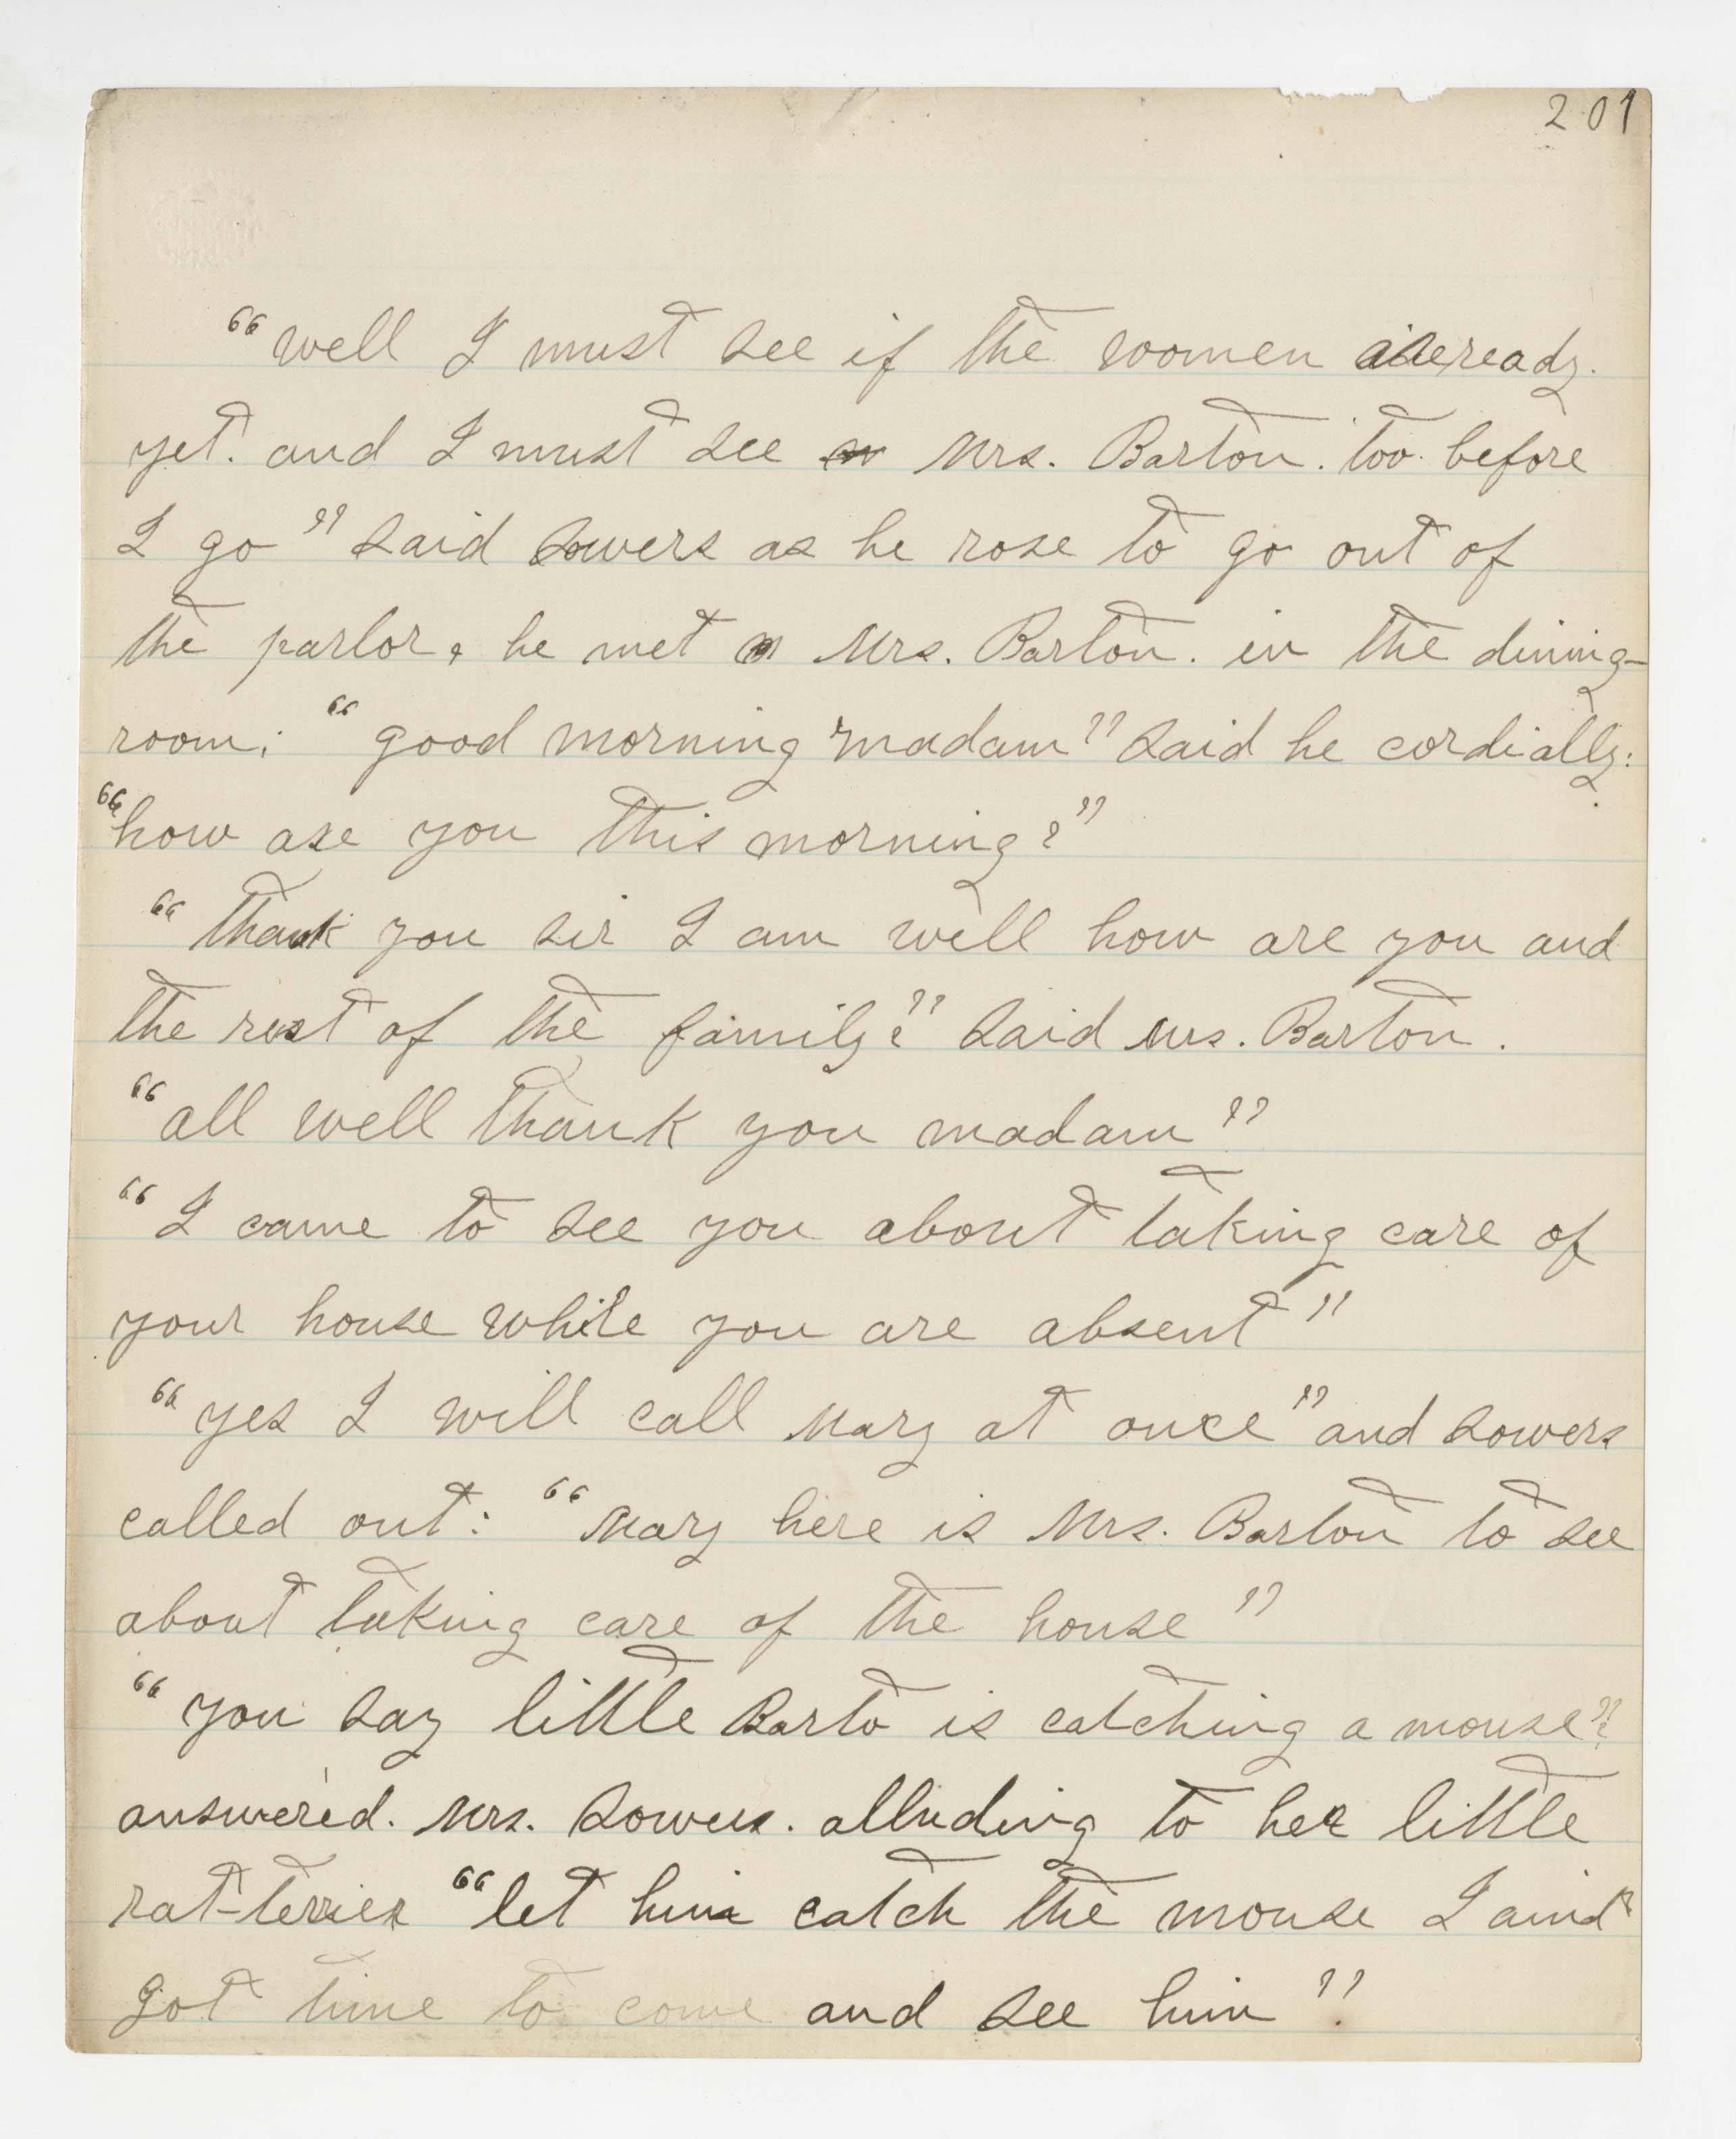 201
“well I must see if the women are ready.
yet. and I must see Mrs. Barton. too. before
I go” said Sowers as he rose to go out of
the parlor, he met Mrs. Barton. in the dining-
room; “good morning madam” said he cordially:
“how are you this morning?”
“thank you sir I am well how are you and
the rest of the family?” said Mrs. Barton.
“all well thank you madam”
“I came to see you about taking care of
your house while you are absent”
“yes I will call Mary at once” and Sowers
called out: “Mary here is Mrs. Barton to see
about taking care of the house”
“you say little Barto is catching a mouse?”
answered. Mrs. Sowers. alluding to her little
rat-terrier “let him catch the mouse I aint
got time to come and see him”.